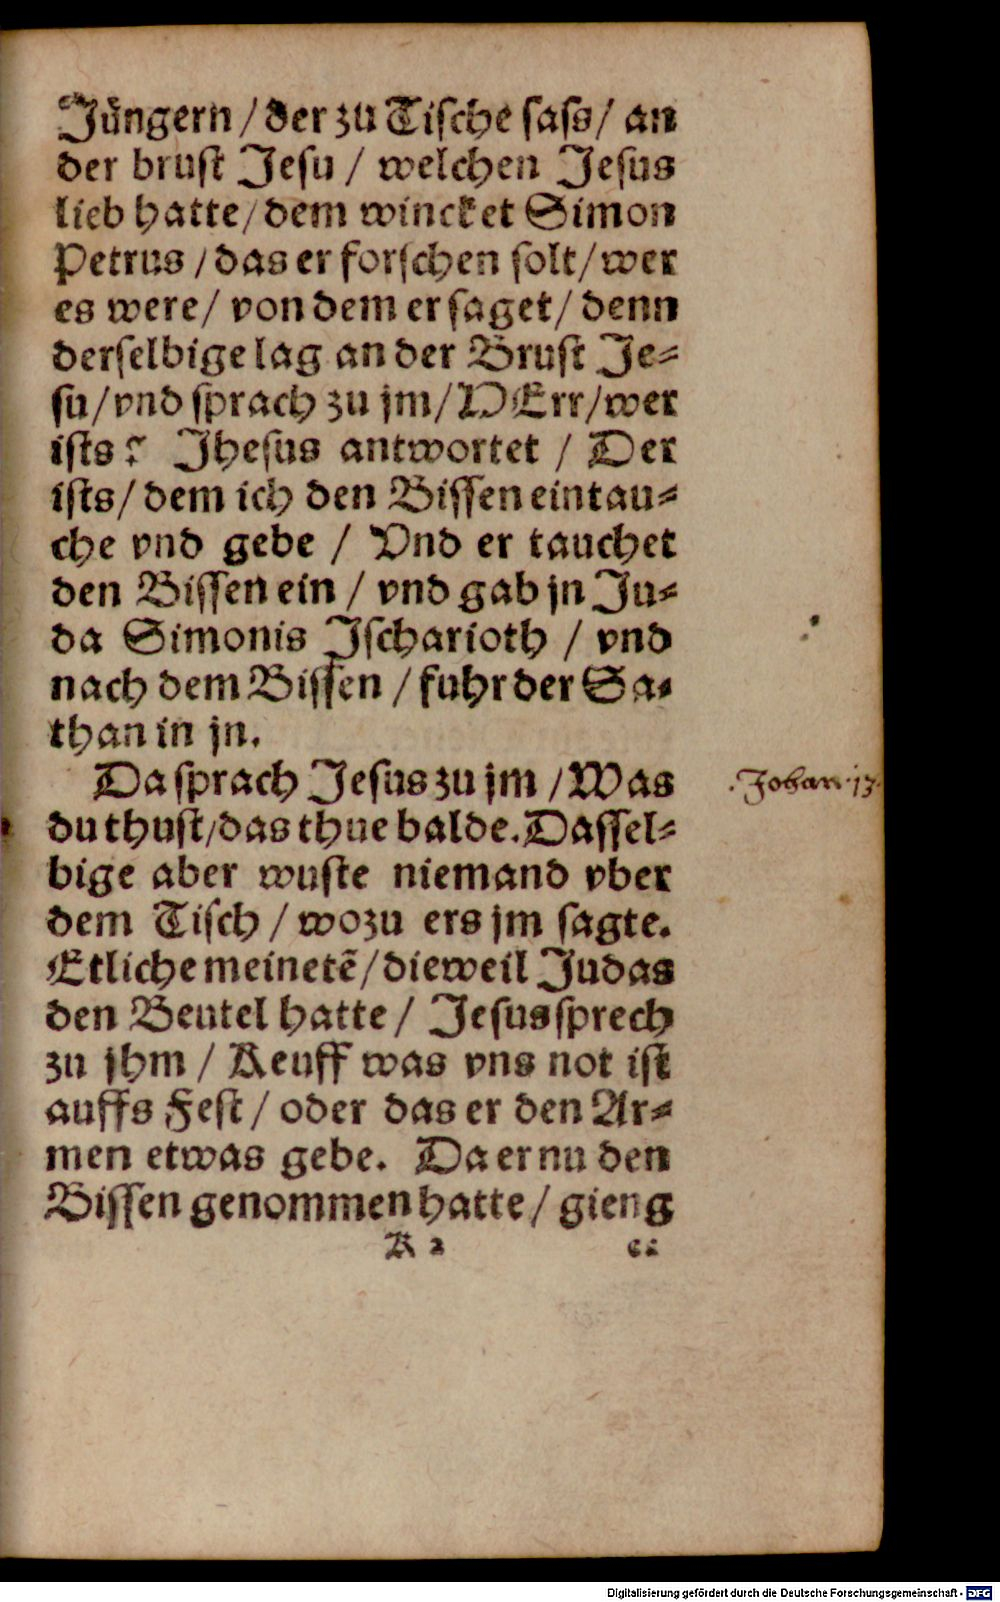 Jüngern / der zu Tiſche ſaſs / an
der bruſt Jeſu / welchen Jeſus
lieb hatte / dem wincket Simon
Petrus / das er forſchen ſolt / wer
es were / von dem er ſaget / denn
derſelbige lag an der Bruſt Je⸗
ſu / vnd ſprach zu jm / HErr / wer
iſts? Jheſus antwortet / Der
iſts / dem ich den Biſſen eintau⸗
che vnd gebe / Vnd er tauchet
den Biſſen ein / vnd gab jn Ju⸗
da Simonis Jſcharioth / vnd
nach dem Biſſen / fuhr der Sa⸗
than in jn.
Da ſprach Jeſus zu jm / Was
du thuſt / das thue balde. Daſſel⸗
bige aber wuſte niemand vber
dem Tiſch / wozu ers jm ſagte.
Etliche meinetẽ / dieweil Judas
den Beutel hatte / Jeſus ſprech
zu jhm / Keuff was vns not iſt
auffs Feſt / oder das er den Ar⸗
men etwas gebe. Da er nu den
Biſſen genommen hatte / gieng
K 2
. Johan . 13 .
Digitalisierung gefördert durch die Deutsche Forschungsgemeinschaft - DFG